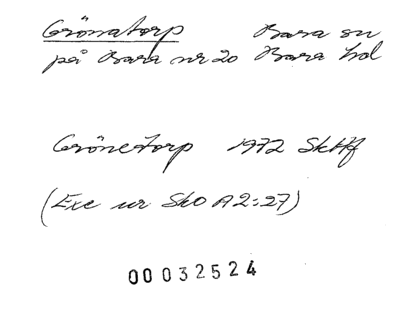 Grönatorp Bara sn
på Bara nr 20 Bara hd
Grönetorp 1972 SkHf
(Exc ur SkO A2:27)
00032524